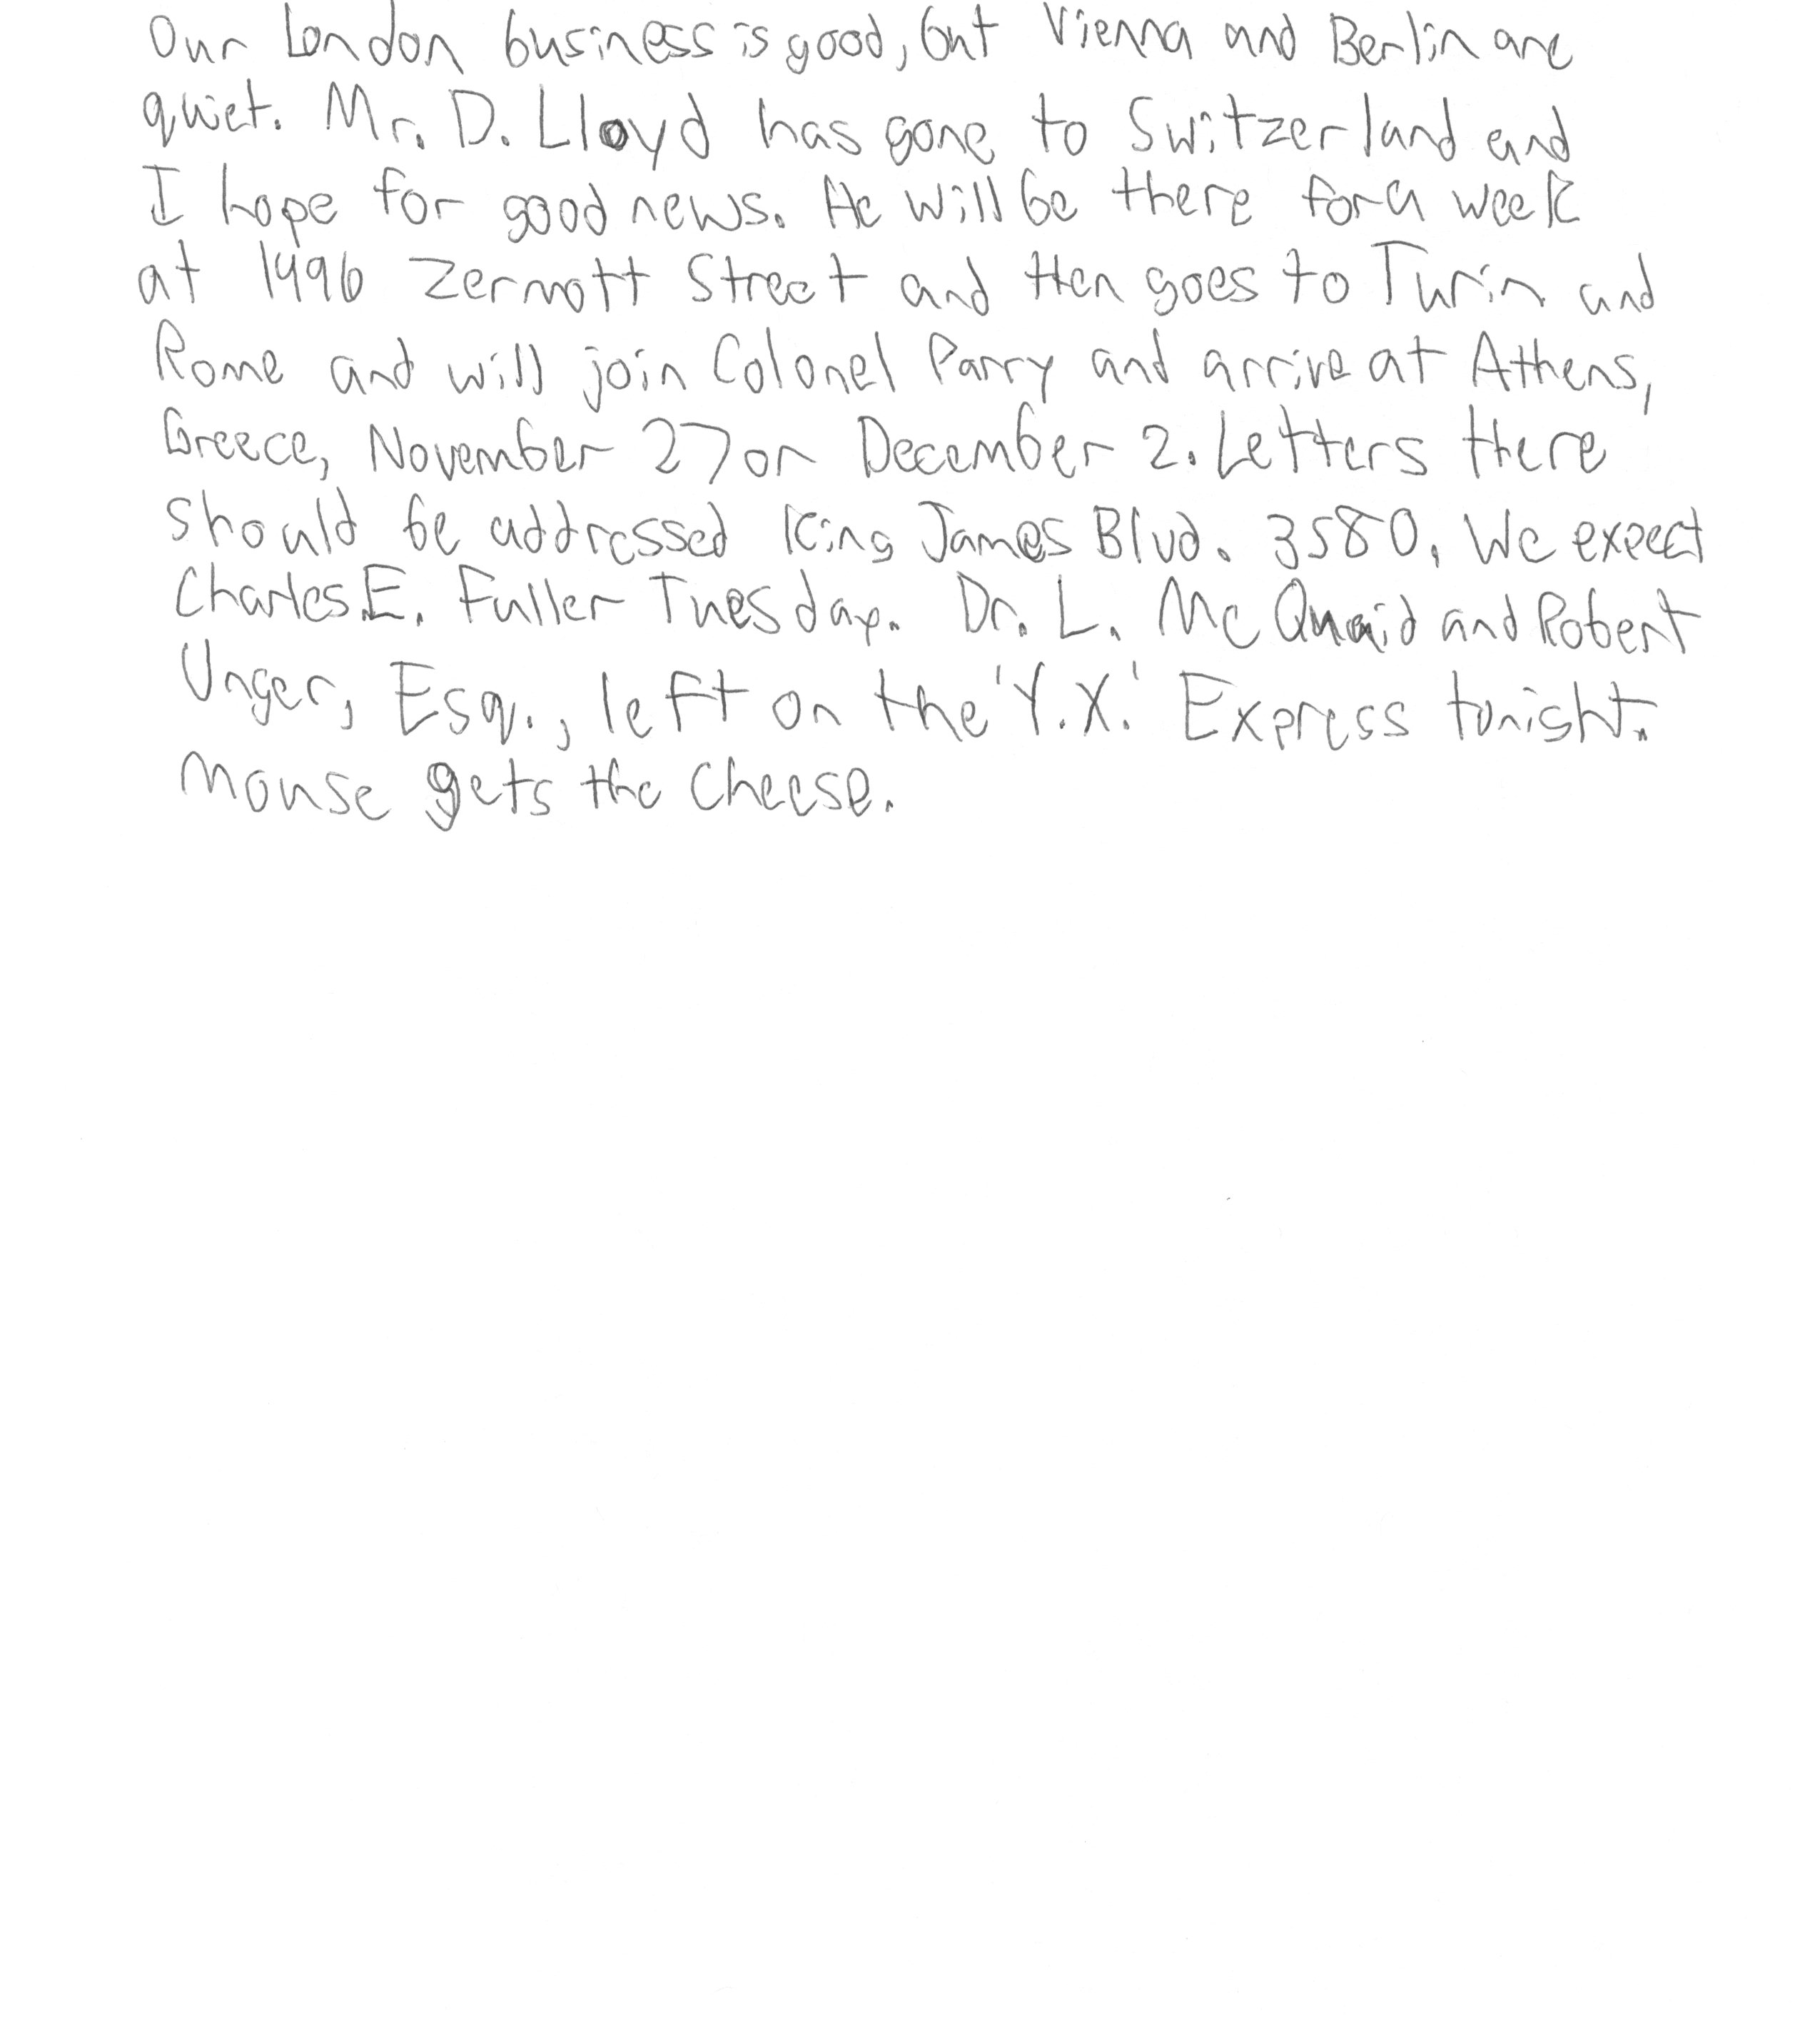 Our London business is good, but Vienna and Berlin are
quiet. Mr. D. Lloyd has gone to Switzerland and
I hope for good news. He will be there for a week
at 1496 Zermott Street and then goes to Turin and
Rome and will join Colonel Parry and arrive at Athens,
Greece, November 27 or December 2. Letters there
should be addressed King James Blvd. 3580. We expect
Charles E. Fuller Tuesday. Dr. L. McQuaid and Robert
Unger, Esq., left on the 'Y.X.' Express tonight.
Mouse gets the cheese.